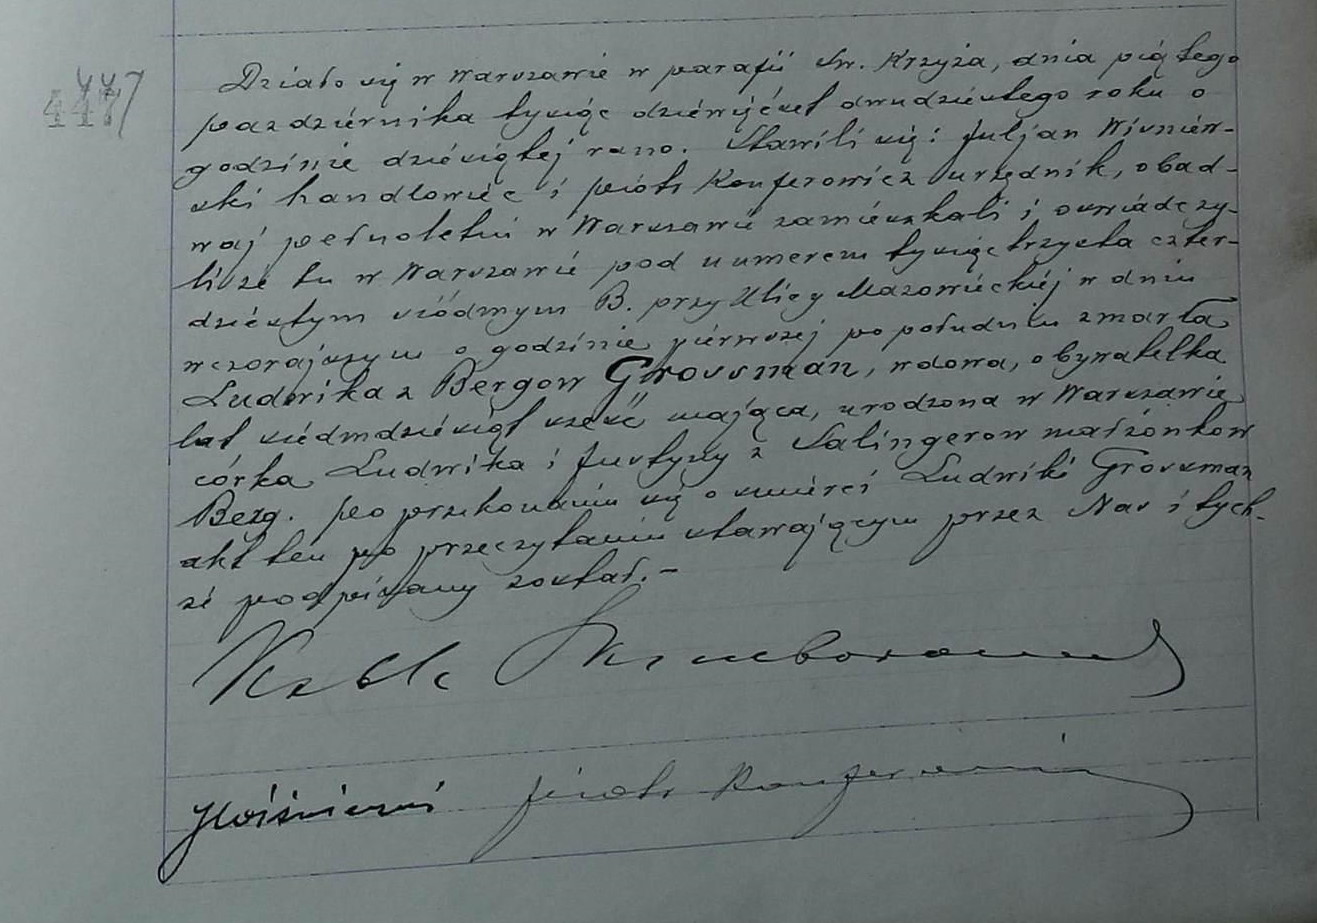 447
Działo się w Warszawie w parafii Św. Krzyża, dnia piątego
października tysiąc dziewięćset dwudziestego roku o
godzinie dziesiątej rano. Stawili się: Juljan Wiśniew-
ski handlowiec i Piotr Konferowicz urzędnik, obad-
waj pełnoletni w Warszawie zamieszkali i oświadczy-
li że tu w Warszawie pod numerem tysiąc trzysta czter-
dziestym siódmym B. przy Ulicy Mazowieckiej w dniu
wczorajszym o godzinie pierwszej po południu zmarła
Ludwika z Bergow Grossman, wdowa, obywatelka
lat siedmdziesiąt sześć mająca, urodzona w Warszawie
córka Ludwika i Justyny z Salingerow małżonków
Berg. Po przekonaniu się o śmierci Ludwiki Grossman
akt ten po przeczytaniu stawającym przez Nas i tych-
że podpisany został.-
JWiśniewski Piotr Konferowicz